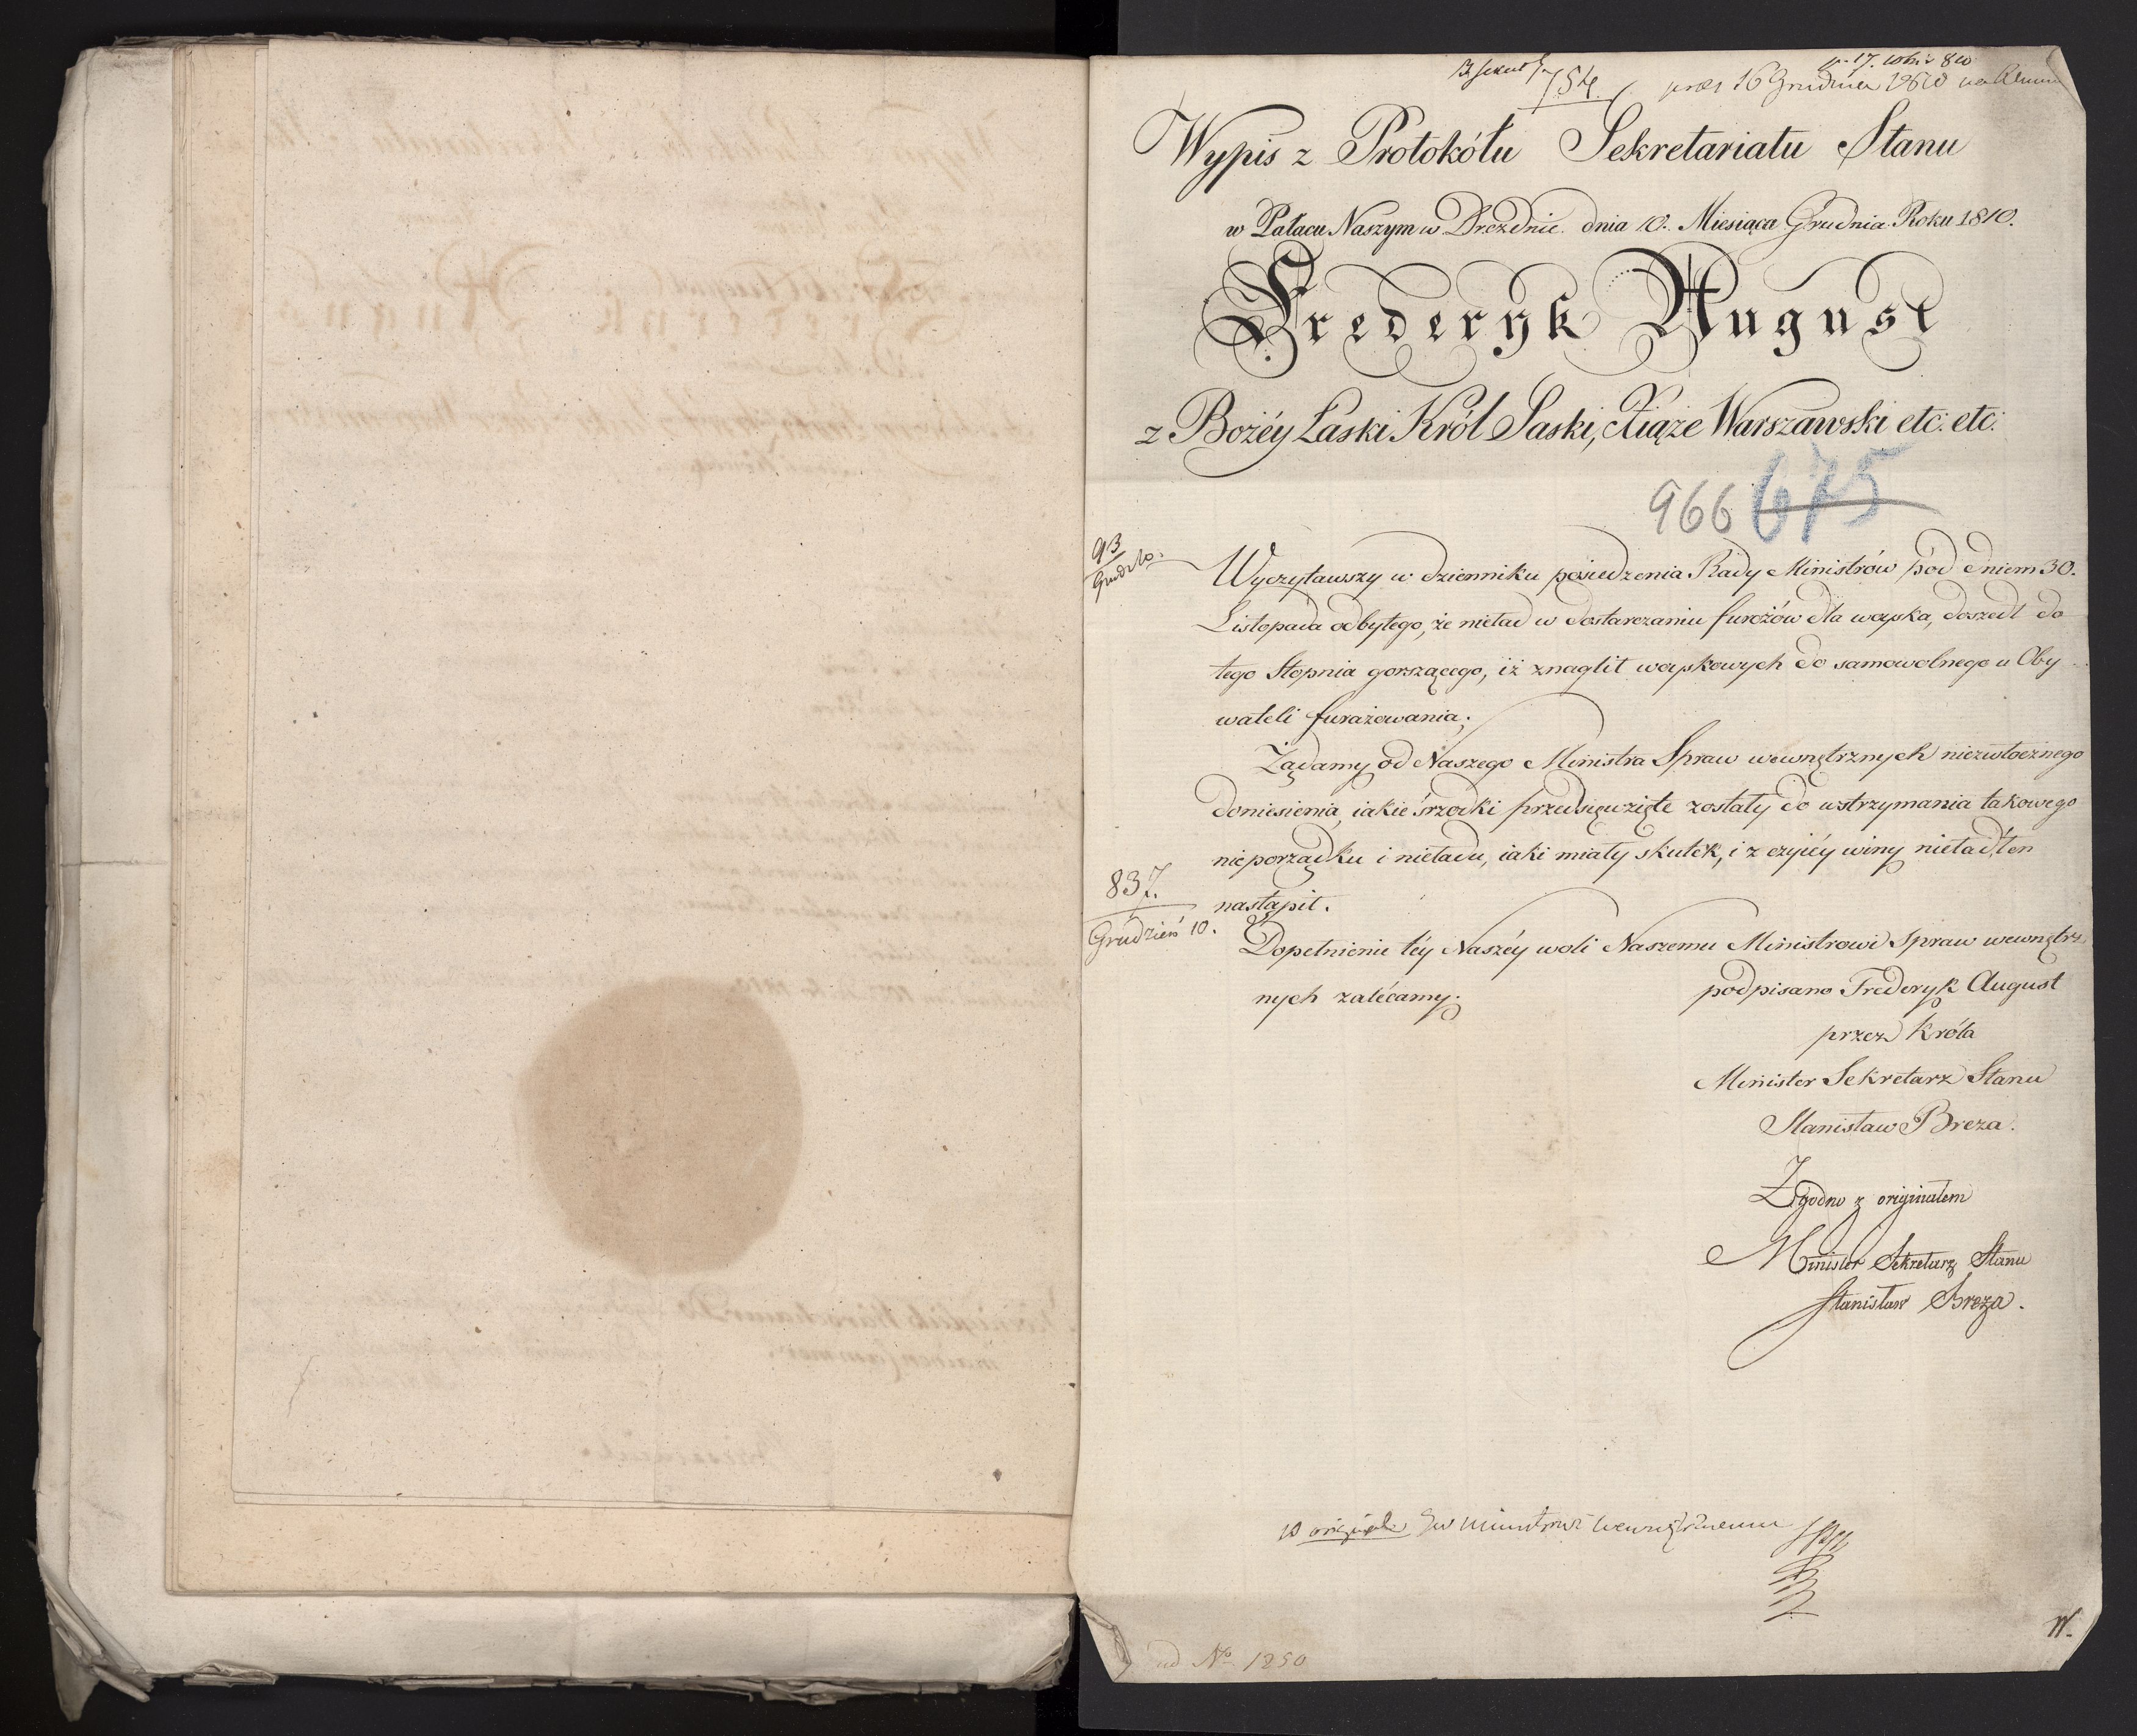 754.
16 Grudnia 1810
Wypis z Protokółu Sekretariatu Stanu
w Pałacu Naszym w Dreźdnie dnia 10. Miesiąca Grudnia Roku 1810.
Frederyk August
z Bożéy Łaski Król Saski, Xiąże Warszawski etc: etc:
966 675
93
Grud: 10.
Wyczytawszy w dzienniku posiedzenia Rady Ministrów pod dniem 30.
Listopada odbytego, że nieład w dostarczaniu furażów dla woyska, doszedł do
tego Stopnia gorszącego, iż znaglił woyskowych do samowolnego u Oby-
wateli furażowania;
Żądamy od Naszego Ministra Spraw wewnętrznych niezwłocznego
doniesienia, iakie śrzodki przedsięwzięte zostały do wstrzymania takowego
nieporządku i nieładu, iaki miały skutek, i z czyiéy winy nieład ten
nastąpił.
837.
Grudzień 10.
Dopełnienie téy Naszéy woli Naszemu Ministrowi Spraw wewnętrz-
nych zalécamy.
podpisano Frederyk August
przez Króla
Minister Sekretarz Stanu
Stanisław Breza.
Zgodno z originałem
Minister Sekretarz Stanu
Stanisław Breza.
Ministrowi Wewnętrznemu
ad No 1250
W.